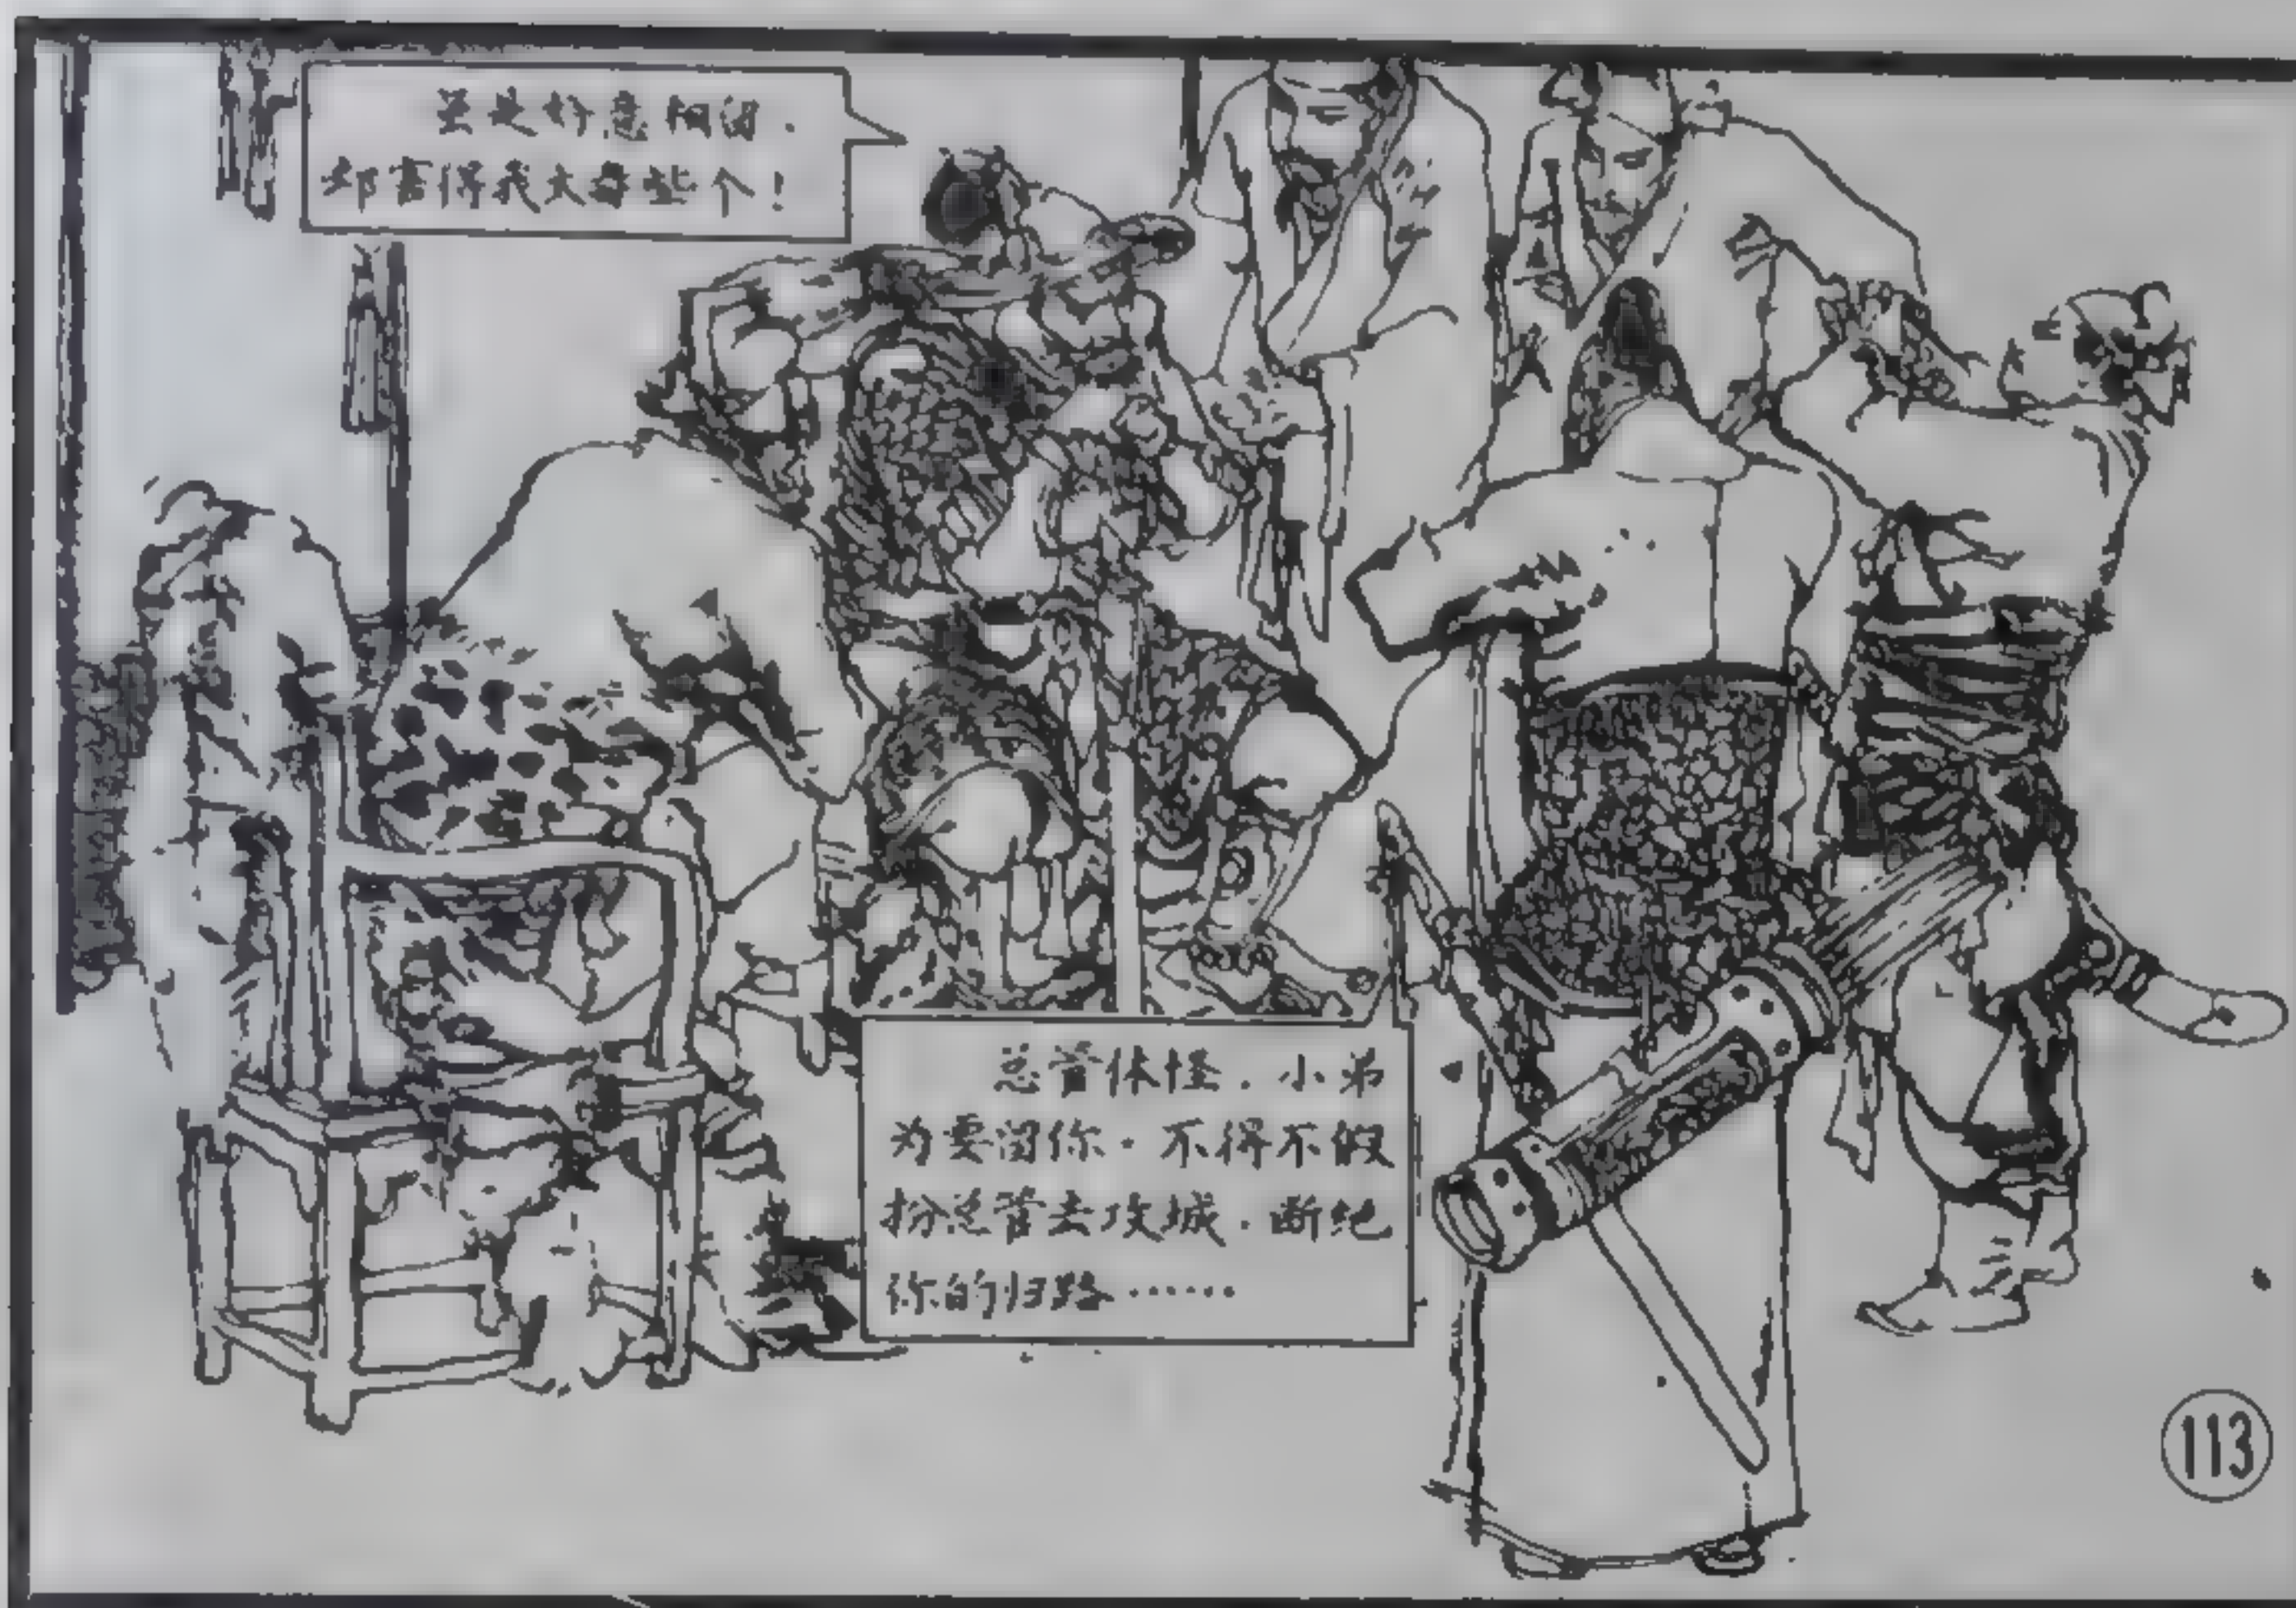 虽是好意相留.
却害得我太毒些个!
总管休怪.小弟
为要留你.不得不假
扮总管去攻城.断绝
你的归路……
113